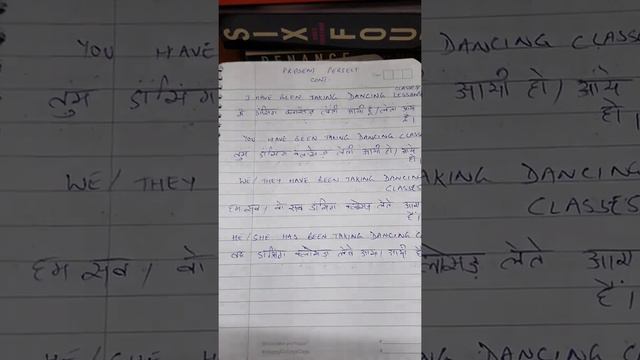 SIX FOU
PENANCE
PRESENT PERFECT
CONT.
CLASSES
I HAVE BEEN TAKING DANCING LESSONS
मैं डांसिंग क्लासेज लेती आयी हूँ / लेता आया
हूँ।
YOU HAVE BEEN TAKING DANCING CLASS
तुम डांसिंग क्लासेज लेती आयी हो / आये
हो।
WE / THEY HAVE BEEN TAKING DANCING
CLASSES
हम सब / वो सब डांसिंग क्लासेज लेते आए
हैं।
HE / SHE HAS BEEN TAKING DANCING C
वह डांसिंग क्लासेज लेते आया / आयी है
YOU HAVE
DANCING CLASSE
तुम डांसिंग
आयी हो / आये
हो।
WE / THEY
AKING DANCING
CLASSES
हम सब / वो
क्लासेज़ लेते आए
हैं।
HE / SHE
DANCING C